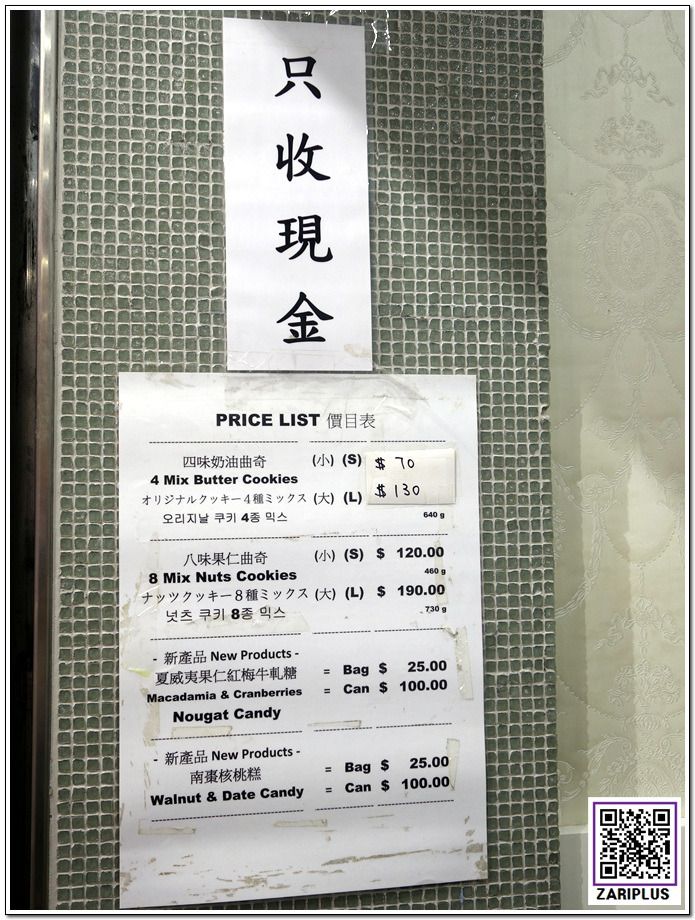 只收現金
PRICE LIST 價目表
四味奶油曲奇 (小) (S) $ 70
4 Mix Butter Cookies
オリジナルクッキー4種ミックス (大) (L) $ 130
오리지날 쿠키 4종 믹스 640 g
八味果仁曲奇 (小) (S) $ 120.00
8 Mix Nuts Cookies 460 g
ナッツクッキー8種ミックス (大) (L) $ 190.00
넛츠 쿠키 8종 믹스 730 g
- 新產品 New Products -
夏威夷果仁紅梅牛軋糖 = Bag $ 25.00
Macadamia & Cranberries = Can $ 100.00
Nougat Candy
- 新產品 New Products -
南棗核桃糕 = Bag $ 25.00
Walnut & Date Candy = Can $ 100.00
ZARIPLUS